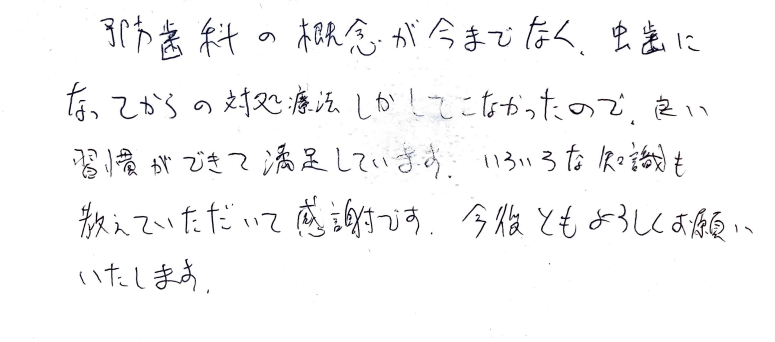 予防歯科の概念が今までなく、虫歯に
なってからの対処療法しかしてこなかったので、良い
習慣ができて満足しています。いろいろな知識も
教えていただいて感謝です。今後ともよろしくお願い
いたします。